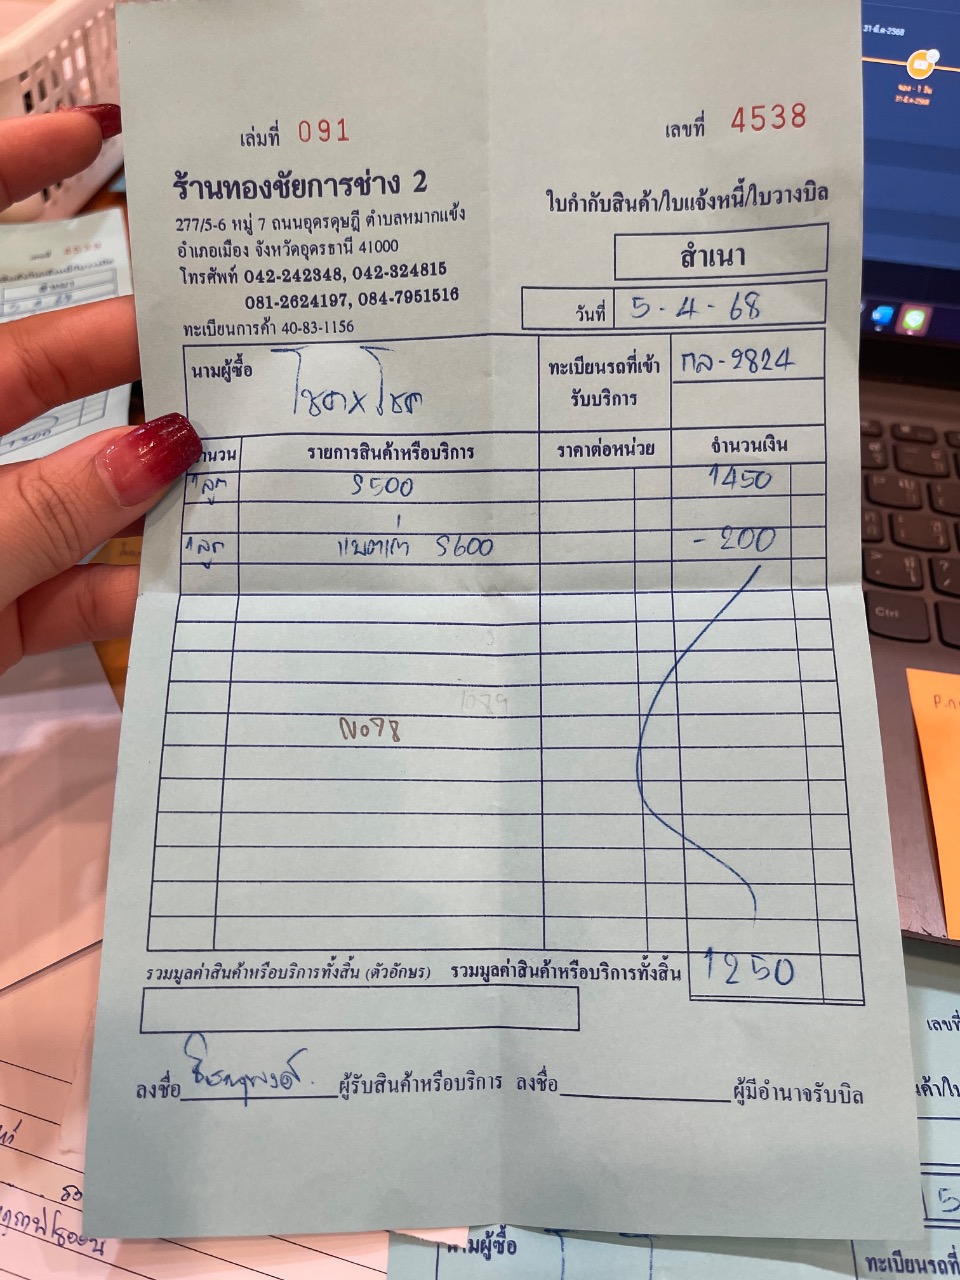 เล่มที่ 091
เลขที่ 4538
ร้านทองชัยการช่าง 2
277/5-6 หมู่ 7 ถนนอุดรดุษฎี ตำบลหมากแข้ง
อำเภอเมือง จังหวัดอุดรธานี 41000
โทรศัพท์ 042-242348, 042-324815
081-2624197, 084-7951516
ทะเบียนการค้า 40-83-1156
ใบกำกับสินค้า/ใบแจ้งหนี้/ใบวางบิล
สำเนา
วันที่ 5-4-68
นามผู้ซื้อ โชคxโชค
ทะเบียนรถที่เข้า
รับบริการ
กล-2824
จำนวน รายการสินค้าหรือบริการ ราคาต่อหน่วย จำนวนเงิน
1 ลูก S500 1450
1 ลูก แบตเก่า S600 -200
No98
รวมมูลค่าสินค้าหรือบริการทั้งสิ้น (ตัวอักษร) รวมมูลค่าสินค้าหรือบริการทั้งสิ้น 1250
ลงชื่อ ผู้รับสินค้าหรือบริการ ลงชื่อ ผู้มีอำนาจรับบิล
31-มี.ค-2568
เลขที่
Ctrl
นามผู้ซื้อ
ทะเบียนรถที่